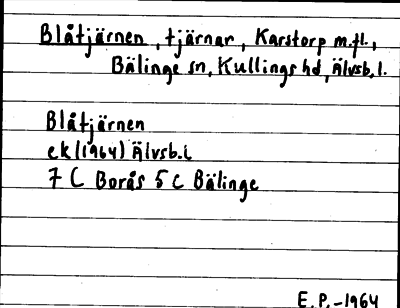 Blåtjärnen, tjärnar, Karstorp m.fl.,
Bälinge sn, Kullings hd, Älvsb.l.
Blåtjärnen
ek (1964) Älvsb.l
7 C Borås 5 c Bälinge
E.P.-1964